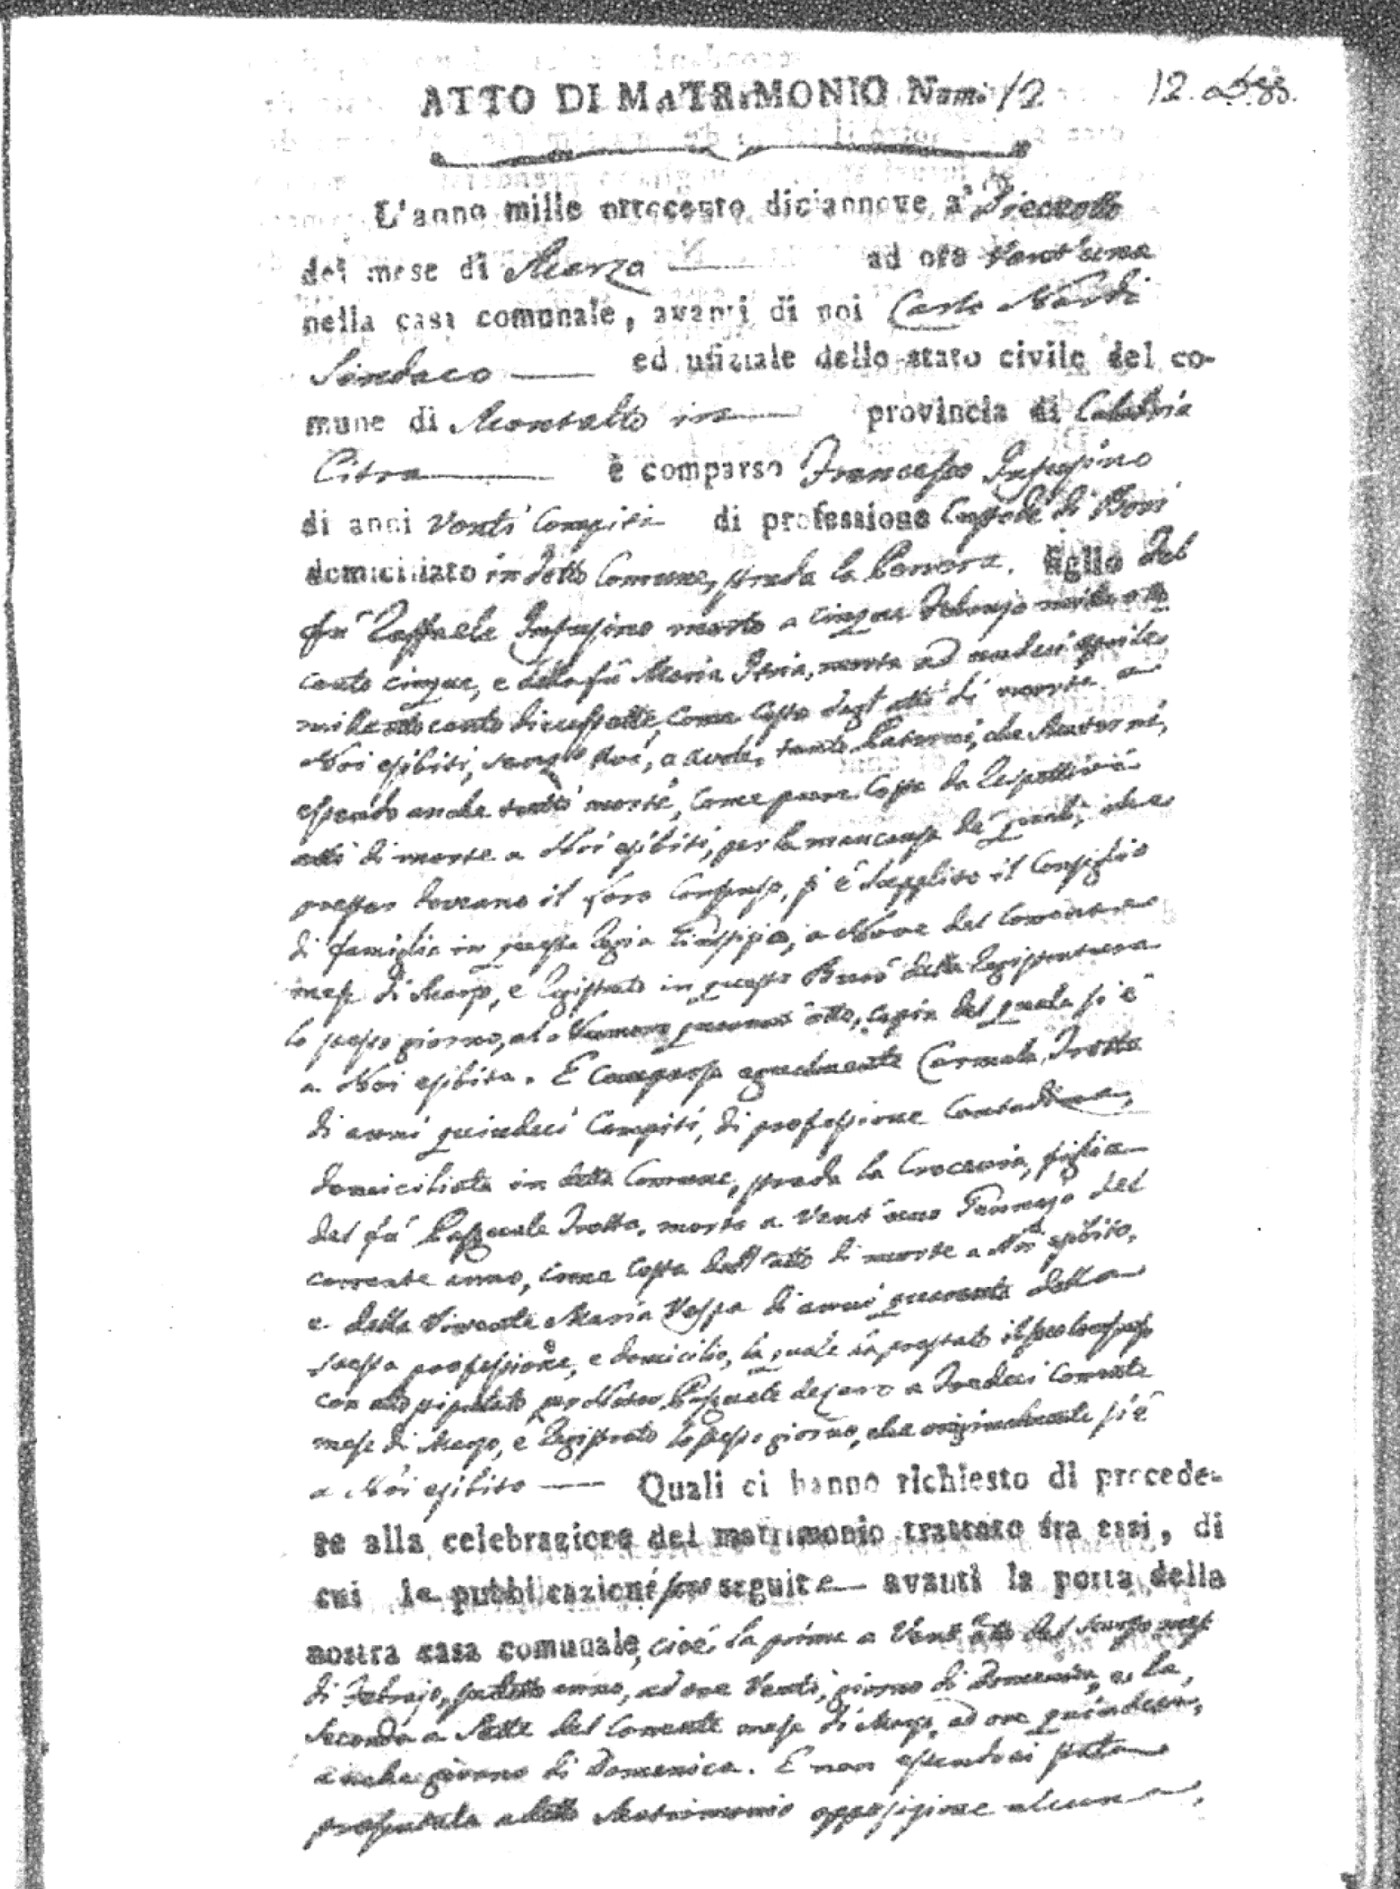 ATTO DI MATRIMONIO Num. 12
12.
L'anno mille ottocento diciannove a' Dieciotto
del mese di Marzo ad ore Vent'una
nella casa comunale, avanti di noi Carlo Nardi
Sindaco ed ufiziale dello stato civile del co-
mune di Montalto in provincia di Calabria
Citra è comparso Francesco Infusino
di anni Venti Compiti di professione Custode di Bovi
domiciliato in detto Comune, strada la figlio Del
fù Raffaele Infusino morto a cinque Febrajo mille otto
cento cinque, e della fù Maria morta ad undeci aprile
mille otto cento diecissette, come costa degl'atti di morte a
Noi esibiti, senza Avi, e avole, tanto Paterni, che Materni,
essendo anche tutti morti, come pure costa da respettivi
atti di morte a Noi esibiti, per la mancanza de quali, che
prestar doveano il loro Consenso, si è supplito il Consiglio
di famiglia in questa Regia Giustizia, a Nove del Corrente
mese di Marzo, e Registrato in questo Burò della Registratura
lo stesso giorno, al Numero quaranta otto, copia del quale si è
a Noi esibita. E Comparsa egualmente Carmela Trotta
di anni quindeci Compiti, di professione Contadina,
domiciliata in detta Comune, strada la Crocevia, figlia
del fù Pasquale Trotta, morto a Vent'uno Gennajo del
corrente anno, come costa dall'atto di morte a Noi esibito,
e della Vivente Maria Vespa di anni quaranta della
stessa professione, e domicilio, la quale ha prestato il suo Consenso
con atto stipulato per Notar Pasquale de a Tredeci Corrente
mese di Marzo, e Registrato lo stesso giorno, che originalmente si è
a Noi esibito Quali ci hanno richiesto di procede-
re alla celebrazione del matrimonio trattato fra essi, di
cui le pubblicazioni sono seguite avanti la porta della
nostra casa comunale, cioè, la prima a Vent'otto del scorso mese
di Febrajo, sudetto anno, ad ore Venti, giorno di Domenica, e la
seconda a Sette del Corrente mese di Marzo, ad ore quindeci,
anche giorno di Domenica. E non essendosi stata
presentata a detto Matrimonio opposizione alcuna,